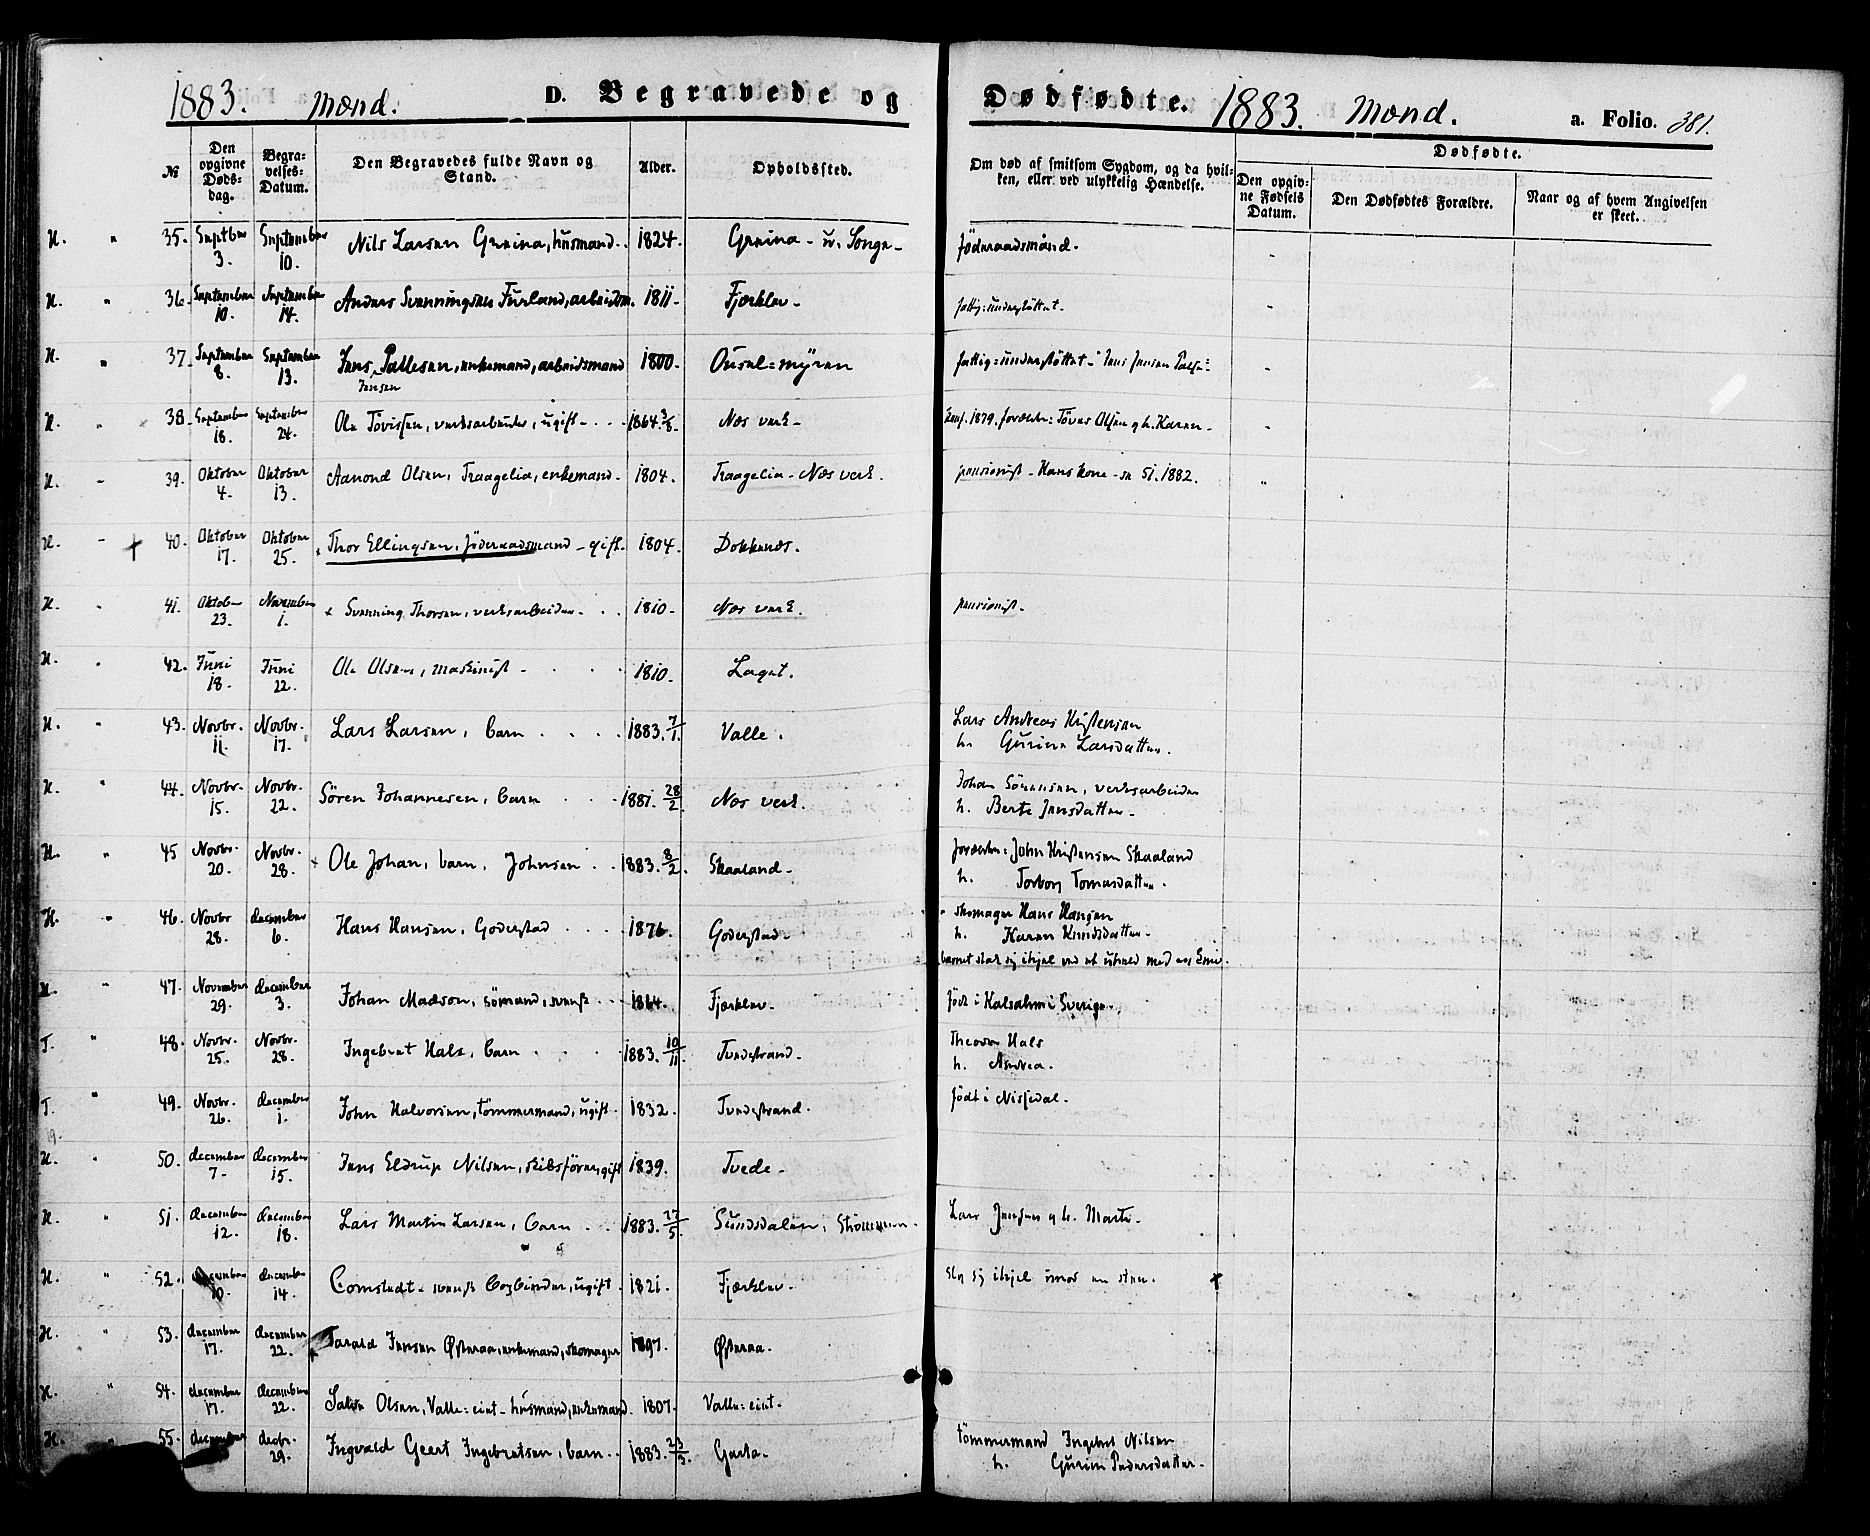 1883. Mænd. D. Begravede og Dødfødte. 1883. Mænd. a. Folio. 381.
№ Den opgivne Døds-dag. Begra-velses-Datum. Den Begravedes fulde Navn og Stand. Alder. Opholdssted. Om død af smitsom Sygdom, og da hvil-ken, eller ved ulykkelig Hændelse. Dødfødte. Den opgiv-ne Fødsels Datum. Den Dødfødtes Forældre. Naar og af hvem Angivelsen er skeet.
H. " 35. Septbr 3. September 10. Nils Larsen Greina, husmand. 1824. Greina - v. Songe - Föderaadsmand.
H. " 36. September 10. September 14. Anders Svenningsen Furland, arbeidsm. 1811. Fjærklev - fattig=understöttet.
H. " 37. September 8. September 13. Jens Pallesen, enkemand, arbeidsmand 1800. Ousel=myren fattig=understöttet - Jens Jensen
Jensen
H. " 38. September 18. September 24. Ole Tövissen, verksarbeider, ugift 1864. 3/8 Næs verk - Konf. 1879. forældre: Töves Olsen og h. Karen -
H. - 39. Oktober 4. Oktober 13. Aanond Olsen, Traagelia, enkemand - 1804. Traagelia - Næs verk. pensionist - Hans kone 1882.
H. - 40. Oktober 17. Oktober 25. Thor Ellingsen, föderaadsmand - gift. 1804. Dokkenæs.
H. - 41. Oktober 23. November 1. Svenning Thorsen, verksarbeider 1810. Næs verk. pensionist.
H. - 42. Juni 18. Juni 22. Ole Olsen, maskinist - 1810. Laget.
H. " 43. Novbr. 11. Novbr. 17. Lars Larsen, barn 1883. 7/1. Valle. Lars Andreas Kristensen
h. Gurine Larsdatter.
H. " 44. Novbr. 15. Novbr. 22. Sören Johannesen, barn 1881. 28/2. Næs verk. Johan Sörensen, verksarbeider
h. Berte Jensdatter -
H. " 45 Novbr. 20. Novbr. 28. Ole Johan, barn, Johnsen 1883. 8/2. Skaaland - forældre: John Kristensen Skaaland
h. Torbor Tomasdatter.
H. " 46. Novbr 28. december 6. Hans Hansen, Goderstad 1876. Goderstad - skomager Hans Hansen
h. Karen Knudsdatter -
barnet ihjel ved et uheld med en
H. " 47. November 29. december 3. Johan Madson, sömand, svensk 1864. Fjærklev. född i Sverige.
T. " 48. Novbr. 25. Novbr. 28. Ingebret Hals, barn 1883. 10/11. Tvedestrand. Theodor Hals
h. Andrea.
T. " 49. Novbr. 26. december 1. John Halvorsen, tömmermand, ugift 1832. Tvedestrand. födt i Nissedal.
H. " 50. december 7. december 15. Jens Eldrup Nilsen, skibsförer, gift 1839. Tvede -
H. " 51. december 12. december 18. Lars Martin Larsen, barn 1883. 27/5. Sundsdalen, Lars Jensen og h. Marte -
H. " 52. december 10. december 14. Comstedt - svensk bogbinder, ugift 1821. Fjærklev. slog sig ihjel imod en sten.
H. " 53. december 17. december 22. Tarald Jensen Østeraa, enkemand, skomager 1897. Østeraa.
H. " 54. december 17. december 22. Olsen, Valle=eiet - husmand, enkemand. 1807. Valle=eiet.
H. " 55. december decbr. 29. Ingvald Geert Ingebretsen, barn 1883. 23/5. Garta. tömmermand Ingebret Nilsen
h. Gurine Pedersdatter -